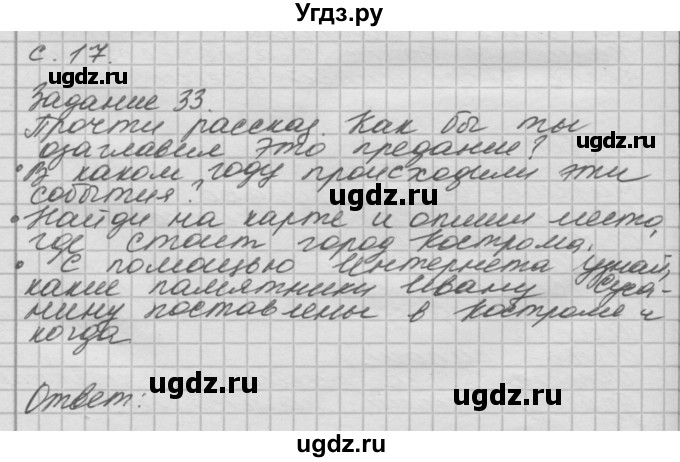 Угдз.ру
с. 17.
ugdz.ru ugdz.ru
Задание 33.
ugdz.ru
Прочти рассказ. Как бы ты
озаглавил это предание?
ugdz.ru
• В каком году происходили эти
события?
ugdz.ru
• Найди на карте и опиши место,
где стоит город Кострома.
ugdz.ru ugdz.ru
• С помощью Интернета узнай,
какие памятники Ивану Суса-
ugdz.ru
нину поставлены в Костроме и
когда
ugdz.ru ugdz.ru
Ответ:
ugdz.ru